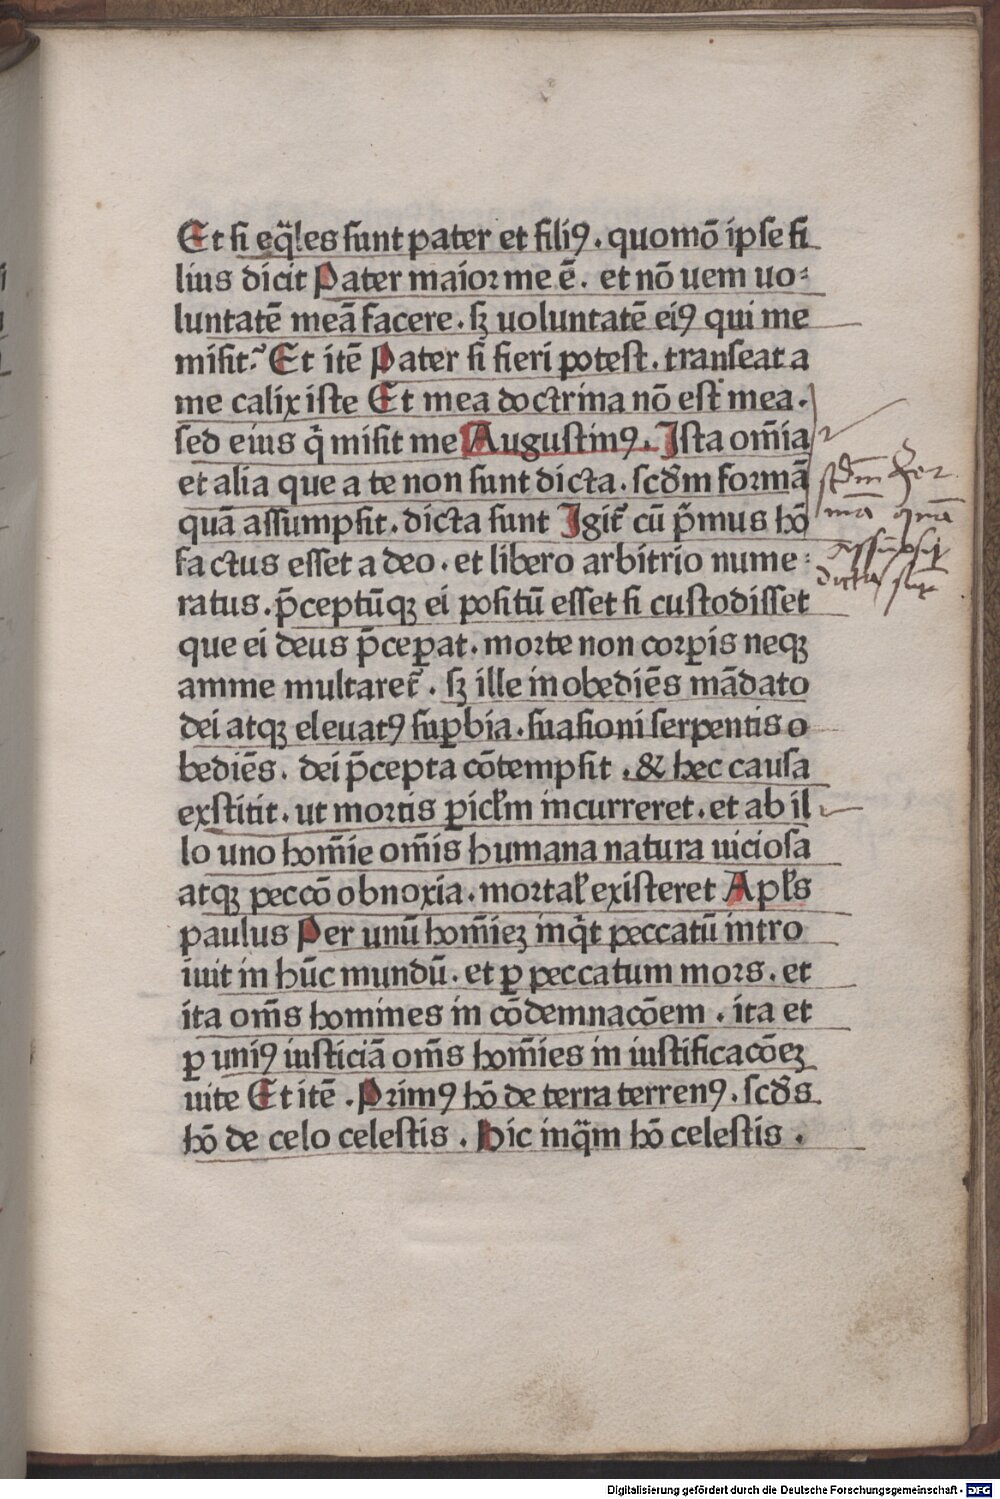 Et si eq̃les sunt pater et filiꝰ. quomō ipse fi
lius dicit Pater maior me ē. et nō ueni uo⸗
luntatē meā facere. sꝫ uoluntatē eiꝰ qui me
misit. Et itē Pater si fieri potest. transeat a
me calix iste Et mea doctrina nō est mea.
sed eius q̄ misit me Augustinꝰ. Ista om̄ia
et alia que a te non sunt dicta. scd̄m formā
quā assumpsit. dicta sunt Igit᷑ cū p̄mus hō
factus esset a deo. et libero arbitrio nume⸗
ratus. p̄ceptūqꝫ ei positū esset si custodisset
que ei deus p̄cepat. morte non corꝑis neqꝫ
anime multaret᷑. sꝫ ille inobediēs mādato
dei atqꝫ eleuatꝰ suꝑbia. suasioni serpentis o
bediēs. dei p̄cepta cōtempsit. & hec causa
exstitit. ut mortis ꝑicl̄m incurreret. et ab il
lo uno hom̄ie om̄is humana natura uiciosa
atqꝫ peccō obnoxia. mortal̄ existeret Apl̄s
paulus Per unū hom̄ieꝫ inq̄t peccatū intro
iuit in hūc mundū. et ꝑ peccatum mors. et
ita om̄s homines in cōdemnacōem. ita et
ꝑ uniꝰ iusticiā om̄s hom̄ies in iustificacōeꝫ
uite Et itē. Primꝰ hō de terra terrenꝰ. scd̄s
hō de celo celestis. Hic inq̄m hō celestis.
scd̄m for
mā quā
assūpsit
dicta sūt
Digitalisierung gefördert durch die Deutsche Forschungsgemeinschaft - DFG